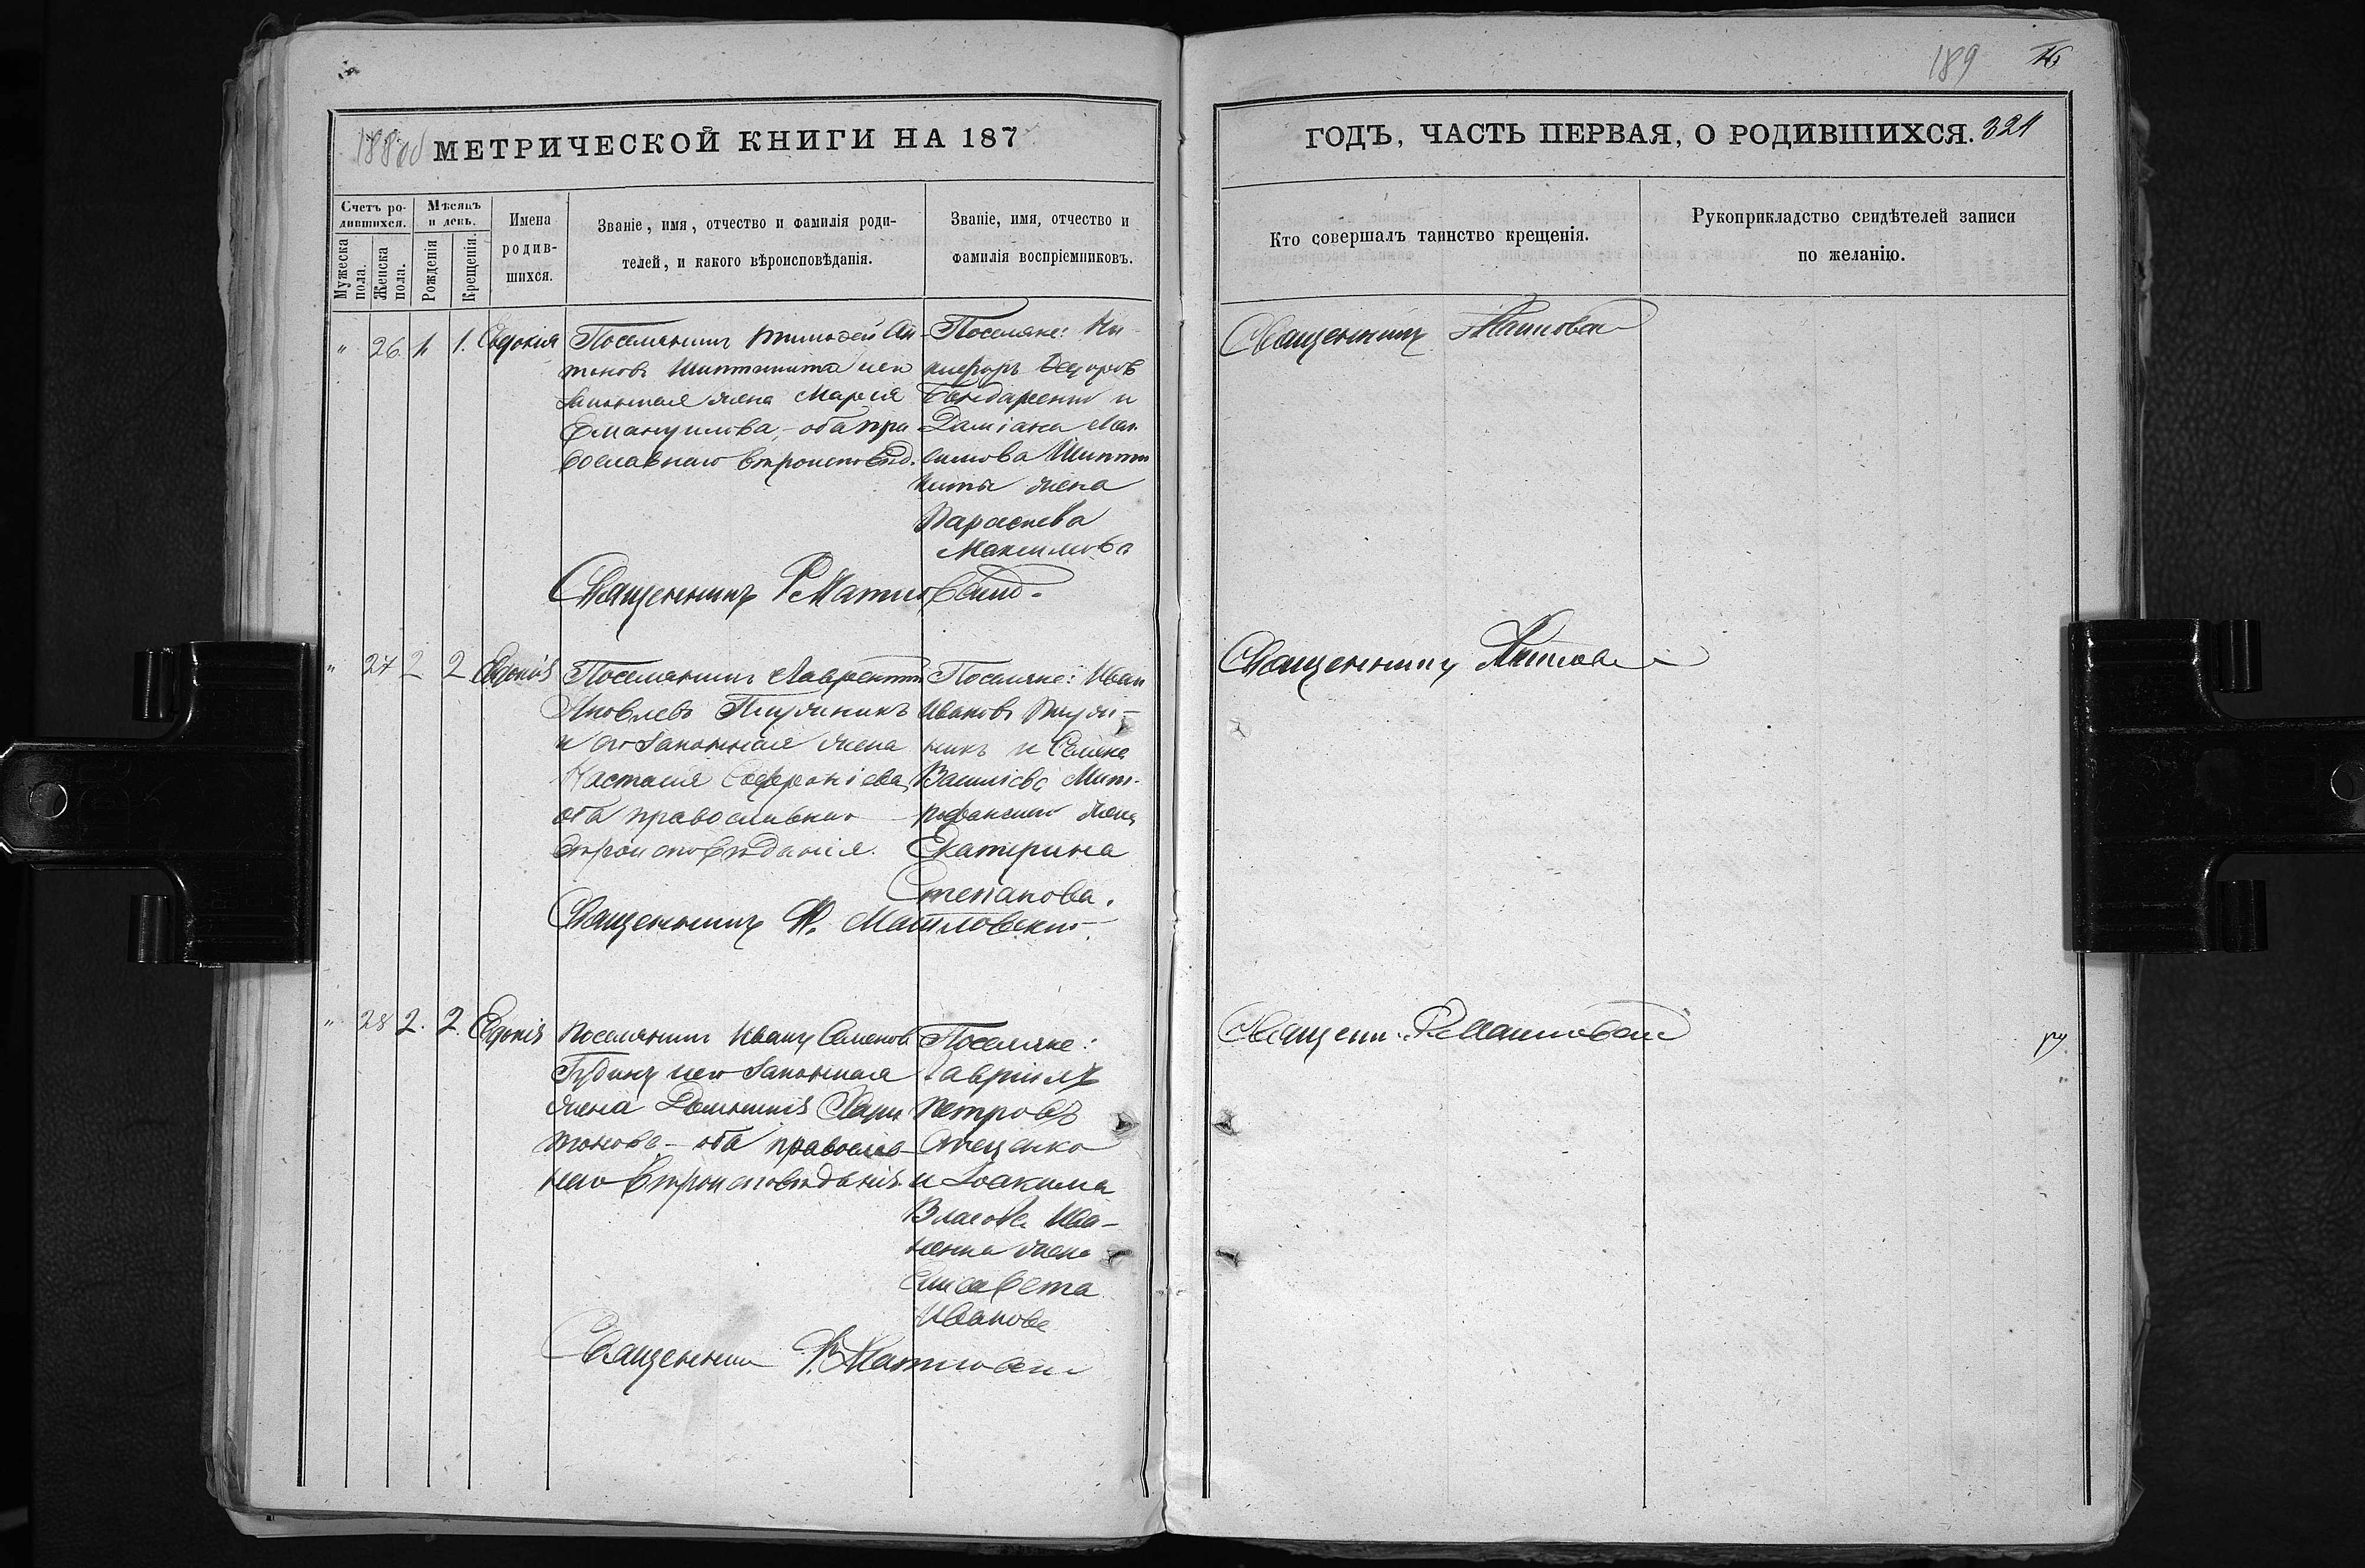 189 16
1880
МЕТРИЧЕСКОЙ КНИГИ НА 187
ГОДЪ, ЧАСТЬ ПЕРВАЯ, О РОДИВШИХСЯ. 321
Счетъ родившихся.
Мужеска пола.
Женска пола.
Мѣсяцъ и день.
Рожденія
Крещенія.
Имена родившихся.
Званіе, имя, отчество и фамилія родителей, и какого вѣроисповѣданія.
Званіе, имя, отчество и фамилія воспріемниковъ.
Кто совершалъ таинство крещенія.
Рукоприкладство свидѣтелей записи по желанію.
" 26. 1. 1. Евдокія
Поселянинъ Тимофей Ан-
тоновъ и его
законная жена Марія
Емануилова, - оба пра
вославнаго вѣроисповѣд.
Поселяне: Ни-
кифоръ Федоровъ
Бондаренко и
Даміана Мак
симова
жена
Параскева
Максимова
Священникъ Р Матковскій.
Священникъ
" 27 2 2 Евдокія
Поселянинъ Лаврентій
Яковлевъ
и его законная жена
Настасія Софроніева,
оба православнаго
вѣроисповѣданія.
Поселяне: Иван
Ивановъ
никъ и Семена
Василіева Мит-
рофанскаго жена
Екатерина
Степанова.
Священникъ Р.
Священникъ
" 28 2. 2. Евдокія
Поселянинъ Иванъ Семеновъ
и его законная
жена Домникія Хари
тонова - оба православ-
наго вѣроисповѣданія.
Поселяне:
Гавріилъ
Петровъ
Стеценко
и Іоакима
Власова Ива-
ненка жена
Елисавета
Иванова
Священникъ Р.
Священн. Р.